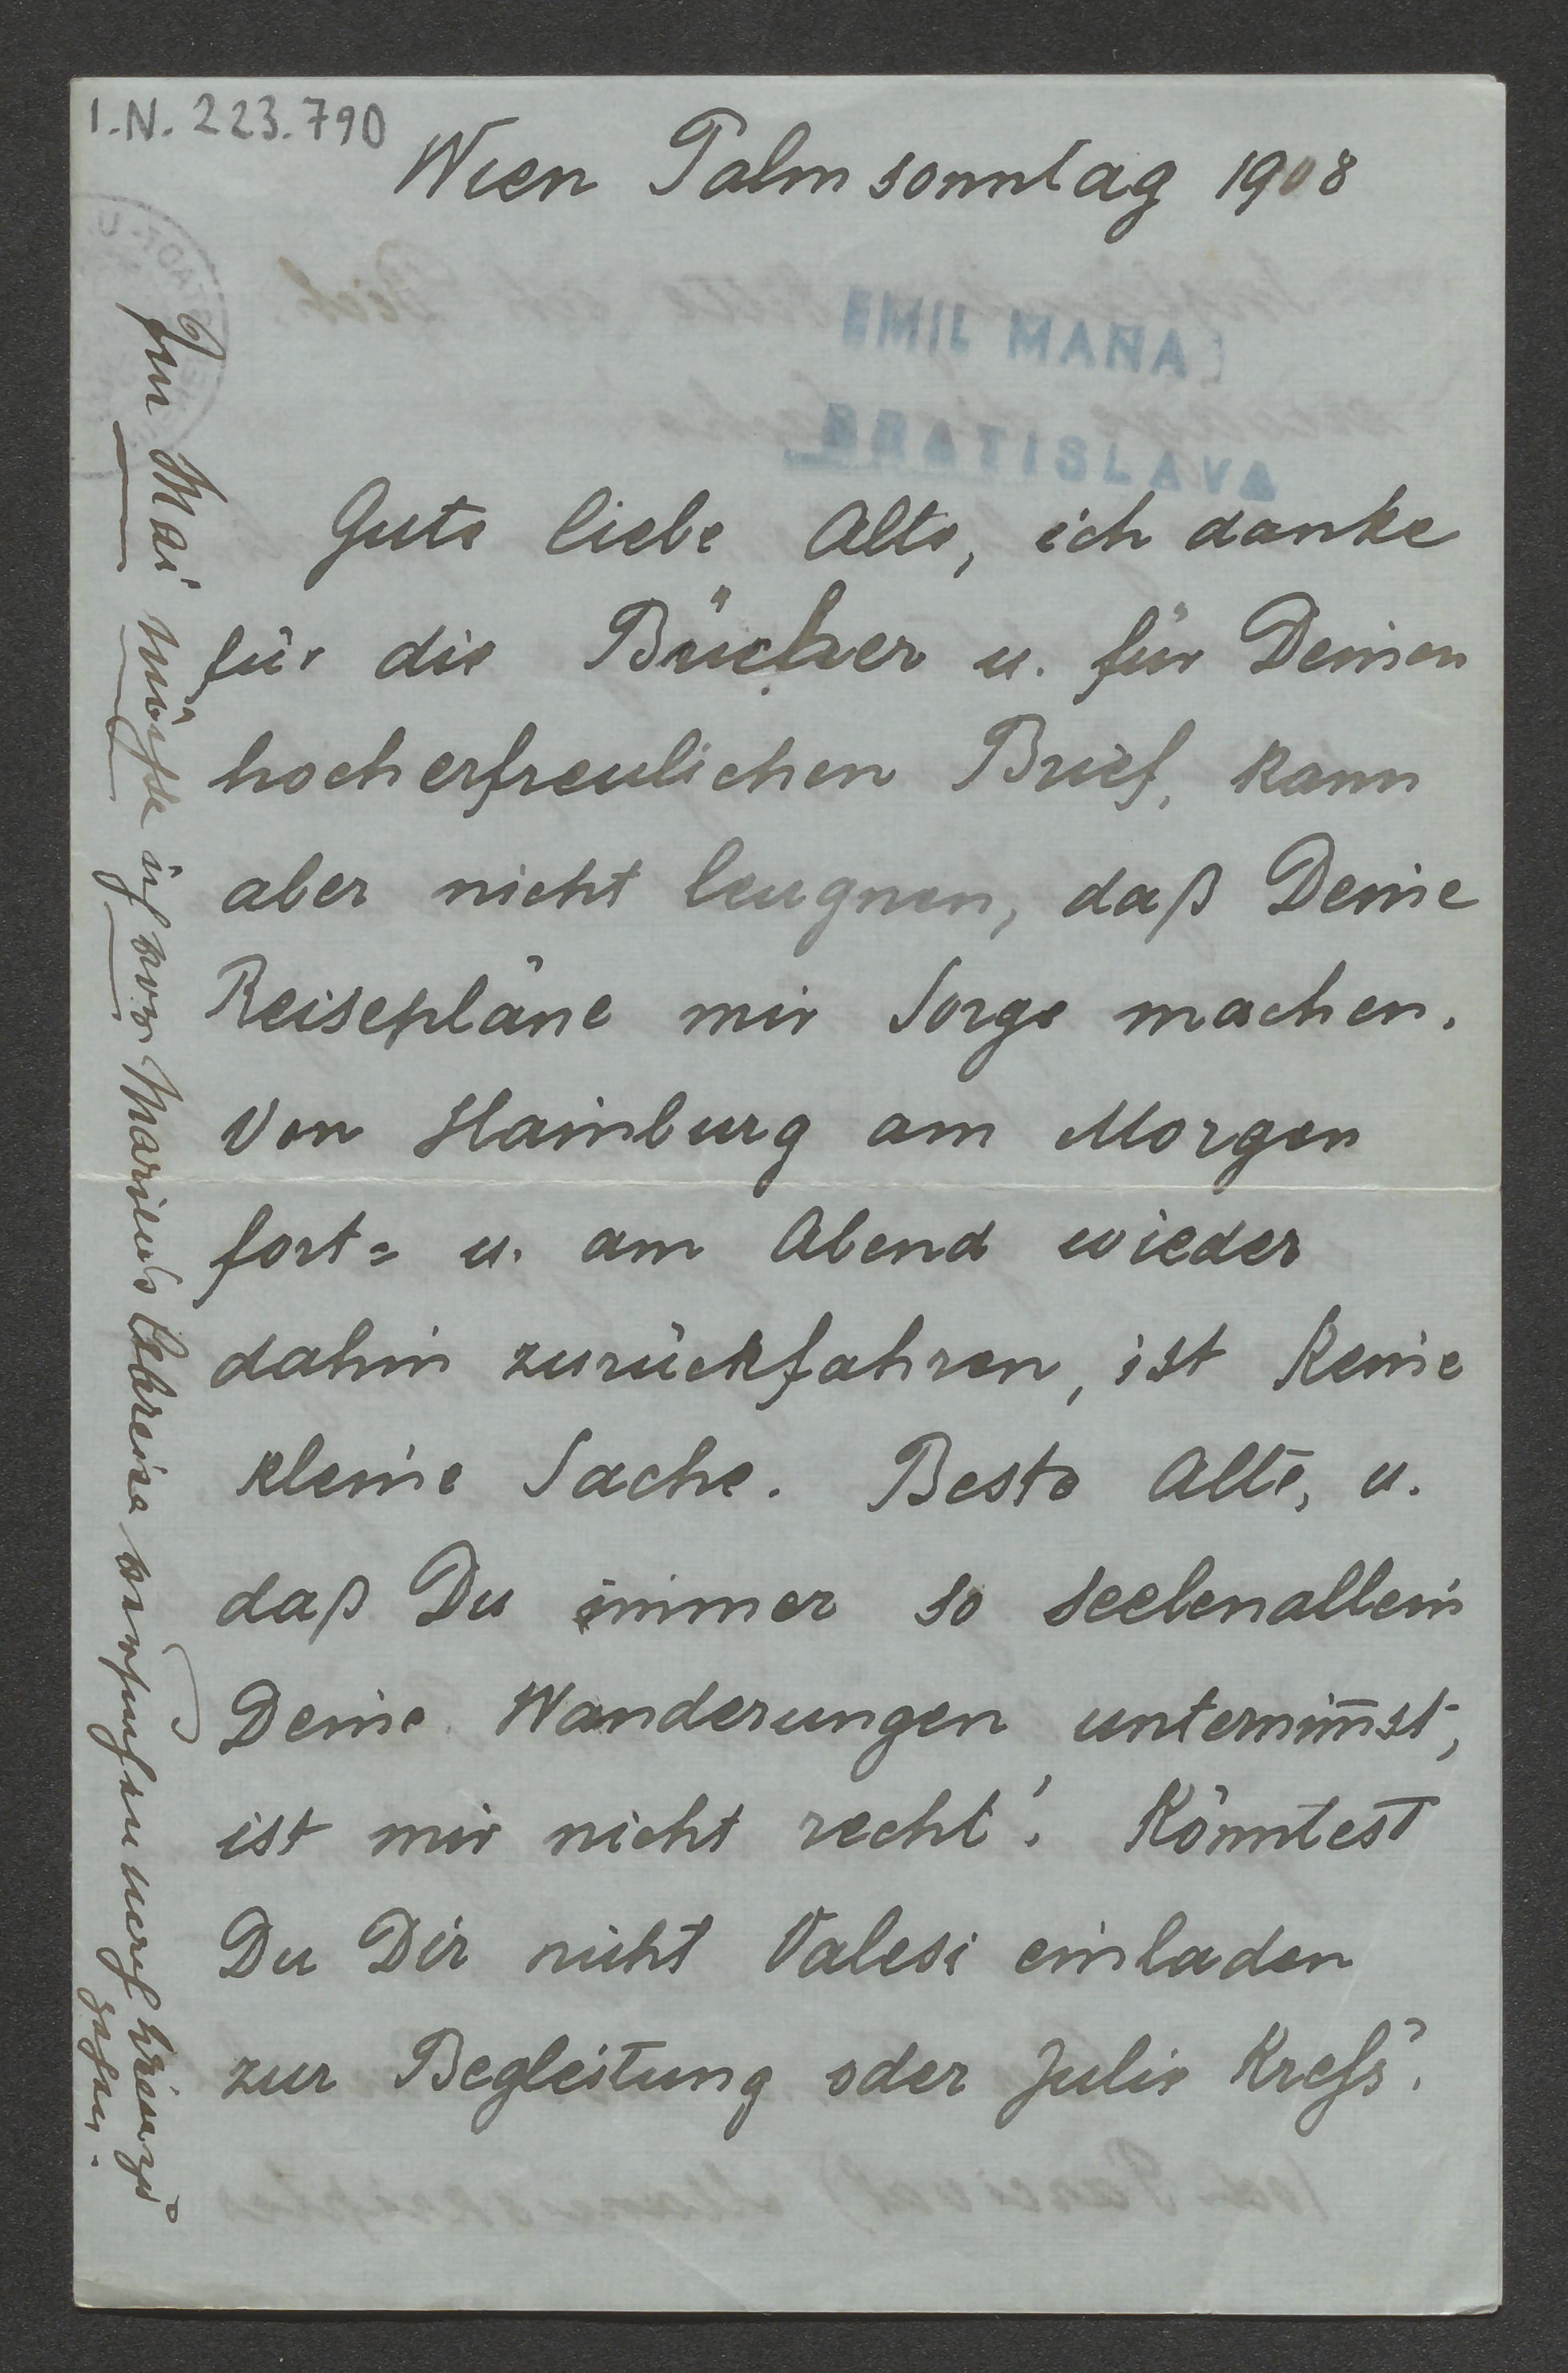 I.N. 223.790
Wien Palmsonntag 1908
EMIL MAŇA
BRATISLAVA
Gute liebe Alte, ich danke
für die Bücher u. für Deinen
hocherfreulichen Brief, kann
aber nicht leugnen, daß Deine
Reisepläne mir Sorge machen.
Von Hainburg am Morgen
fort= u. am Abend wieder
dahin zurückfahren, ist keine
kleine Sache. Beste Alte, u.
daß Du immer so seelenallein
Deine Wanderungen unternim̅st,
ist mir nicht recht! Könntest
Du Dir nicht Valesi einladen
zur Begleitung oder Julie Kreſs?
Im Mai müßte ich vor Mariens Abreise
gehen.